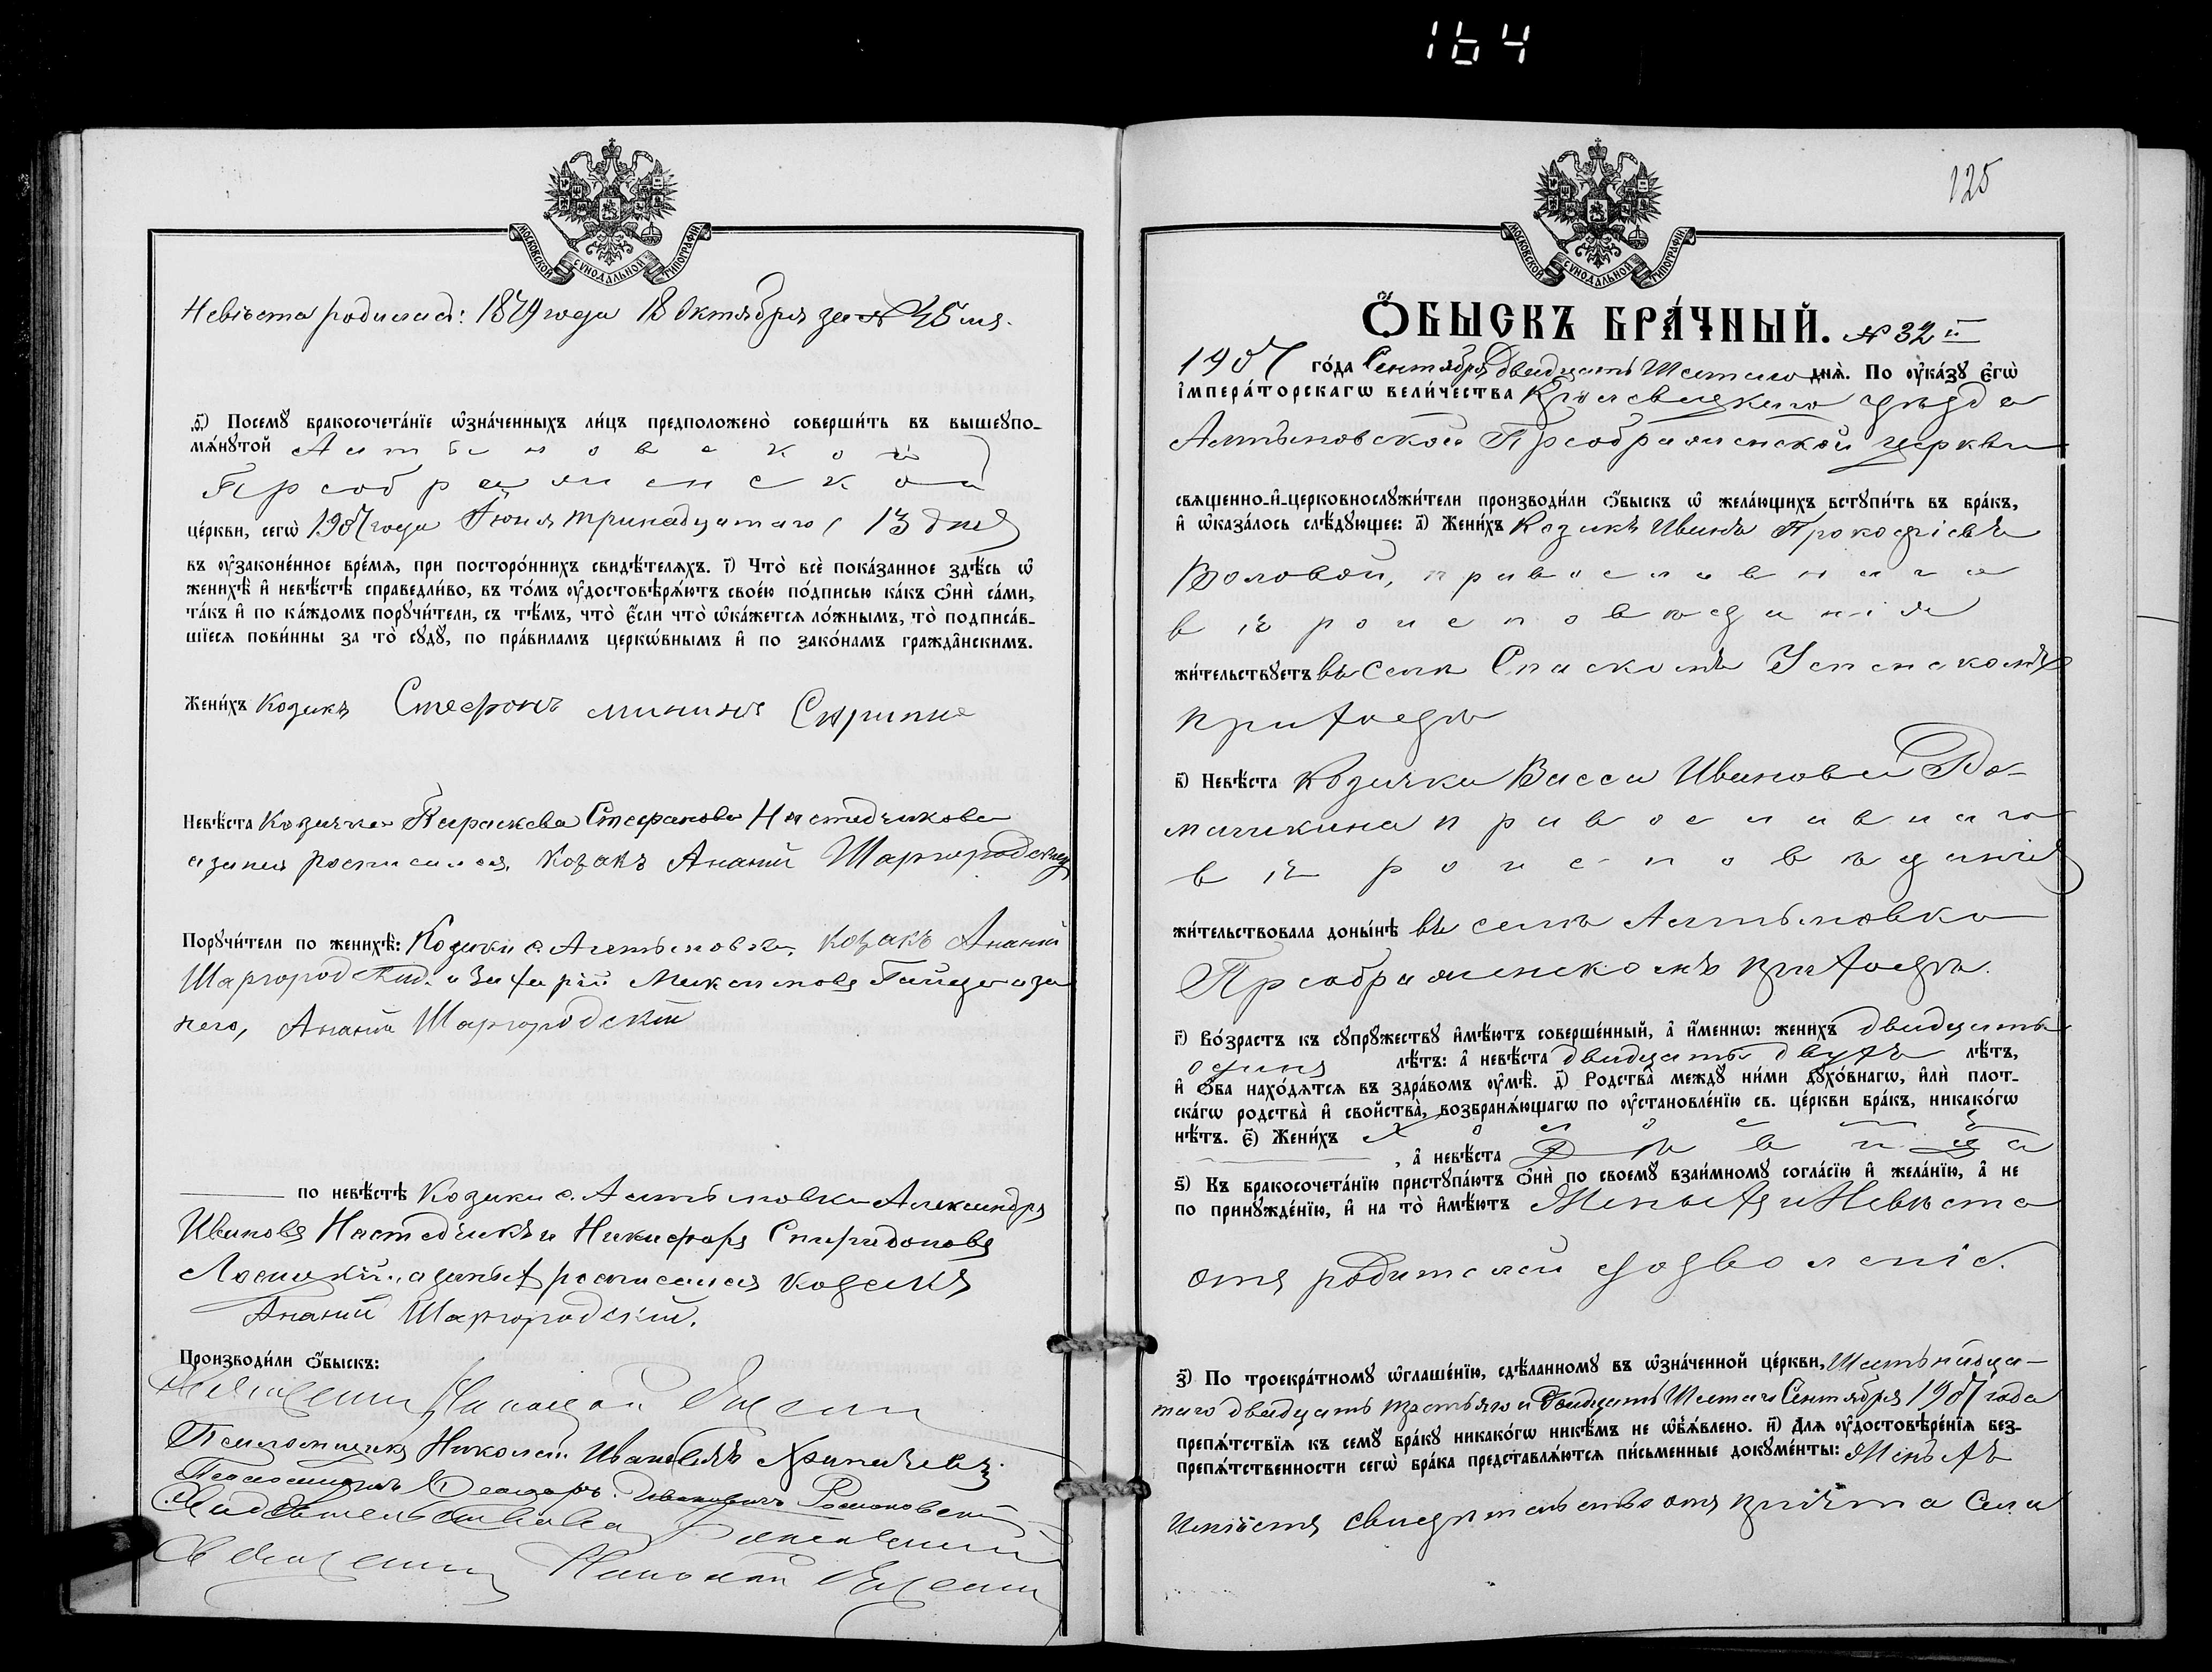 164
МОСКОВСКОЙ СѴНОДАЛЬНОЙ ТИПОГРАФІИ
Невѣста родилась: 1879 года 18 Октября за №
Посемꙋ̀ бракосочета́нїе ѡ҆зна́ченныхъ ли́цъ предположено̀ соверши́ть въ вышеꙋпо-
мѧ́нꙋтой Алтыновской
Преображенской
це́ркви, сегѡ̀ 1907 года Іюня тринадцатаго, 13 дня
въ ᲂу҆законе́нное вре́мѧ, при посторо́ннихъ свидѣ́телѧхъ. і҃) Что̀ всѐ пока́занное здѣ́сь ѡ҆
женихѣ̀ и҆ невѣ́стѣ справедли́во, въ то́мъ ᲂу҆достовѣрѧ́ютъ свое́ю по́дписью ка́къ ѻ҆нѝ са́ми,
та́къ и҆ по ка́ждомъ порꙋчи́тели, съ тѣ́мъ, что̀ є҆́сли что̀ ѡ҆ка́жетсѧ ло́жнымъ, то̀ подписа́в-
шїесѧ пови́нны за то̀ сꙋдꙋ̀, по пра́виламъ церкѡ́внымъ и҆ по зако́намъ гражда̑нскимъ.
Жени́хъ Козакъ Стефанъ Мининъ Скрипка
Невѣ́ста Козачка Параскева Стефанова
а за нея росписался, Козакъ Ананій Шаргородскій
Порꙋчи́тели по женихѣ̀: Козаки с. Алтыновки, Козакъ Ананій
Шаргородскій и Захарій Максимовъ а за
него, Ананій Шаргородскій
по невѣ́стѣ Козаки с. Алтыновки Александръ
Ивановъ и Никифоръ Спиридоновъ
а за нихъ росписался Козакъ
Ананій Шаргородскій.
Производи́ли ѻ҆́быскъ:
Священникъ Николай
Псаломщикъ Николай Ивановичъ
Псаломщикъ Ѳеодоръ Ивановичъ
Священникъ Николай
125
МОСКОВСКОЙ СѴНОДАЛЬНОЙ ТИПОГРАФІИ
Ѻ҆́БЫСКЪ БРА́ЧНЫЙ. № 32й
1907 го́да Сентября двадцать шестаго днѧ̀. По ᲂу҆ка́зꙋ є҆гѡ̀
і҆мпера́торскагѡ вели́чества Кролевецкаго уѣзда
Алтыновской Преображенской церкви
свѧщенно-и҆-церковнослꙋжи́тели производи́ли ѻ҆́быскъ ѡ҆ жела́ющихъ встꙋпи́ть въ бра́къ,
и҆ ѡ҆каза́лось слѣ́дꙋющее: а҃) Жени́хъ Козакъ Иванъ Прокофіевъ
православнаго
вѣроисповѣданія
жи́тельствꙋетъ въ селѣ Спаскомъ Успенскомъ
приходѣ
в҃) Невѣ́ста Козачка Васса Иванова До-
православнаго
вѣроисповѣданія
жи́тельствовала доны́нѣ въ селѣ Алтыновкѣ
Преображенскомъ приходѣ.
г҃) Во́зрастъ къ сꙋпрꙋ́жествꙋ и҆мѣ́ютъ соверше́нный, а҆ и҆́меннѡ: жени́хъ двадцать
одинъ лѣ́тъ: а҆ невѣ́ста двадцать двухъ лѣ́тъ,
и҆ ѻ҆́ба нахо́дѧтсѧ въ здра́вомъ ᲂу҆мѣ̀. д҃) Родства̀ междꙋ̀ ни́ми дꙋхо́внагѡ, и҆лѝ плот-
ска́гѡ родства̀ и҆ сво́йства̀, возбранѧ́ющагѡ по ᲂу҆становле́нїю св. це́ркви бра́къ, никако́гѡ
нѣ́тъ. є҃) Жени́хъ Холостъ
, а҆ невѣ́ста Дѣвица
ѕ҃) Къ бракосочета́нїю пристꙋпа́ютъ ѻ҆нѝ по своемꙋ̀ взаи́мномꙋ согла́сїю и҆ жела́нїю, а҆ не
по принꙋжде́нїю, и҆ на то̀ и҆мѣ́ютъ Женихъ и Невѣста
отъ родителей дозволеніе.
з҃) По троекра́тномꙋ ѡ҆глаше́нїю, сдѣ́ланномꙋ въ ѡ҆зна́ченной це́ркви, Шестьнадца-
таго двадцать третьяго и двадцать шестаго Сентября 1907 года
препѧ́тствїѧ къ семꙋ̀ бра́кꙋ никако́гѡ никѣ́мъ не ѡ҆б̾ѧ́влено. и҃) Длѧ ᲂу҆достовѣре́нїѧ без-
препѧ́тственности сегѡ̀ бра́ка представлѧ́ютсѧ пи́сьменные докꙋме́нты: Женихъ
имѣетъ свидѣтельство отъ причта села